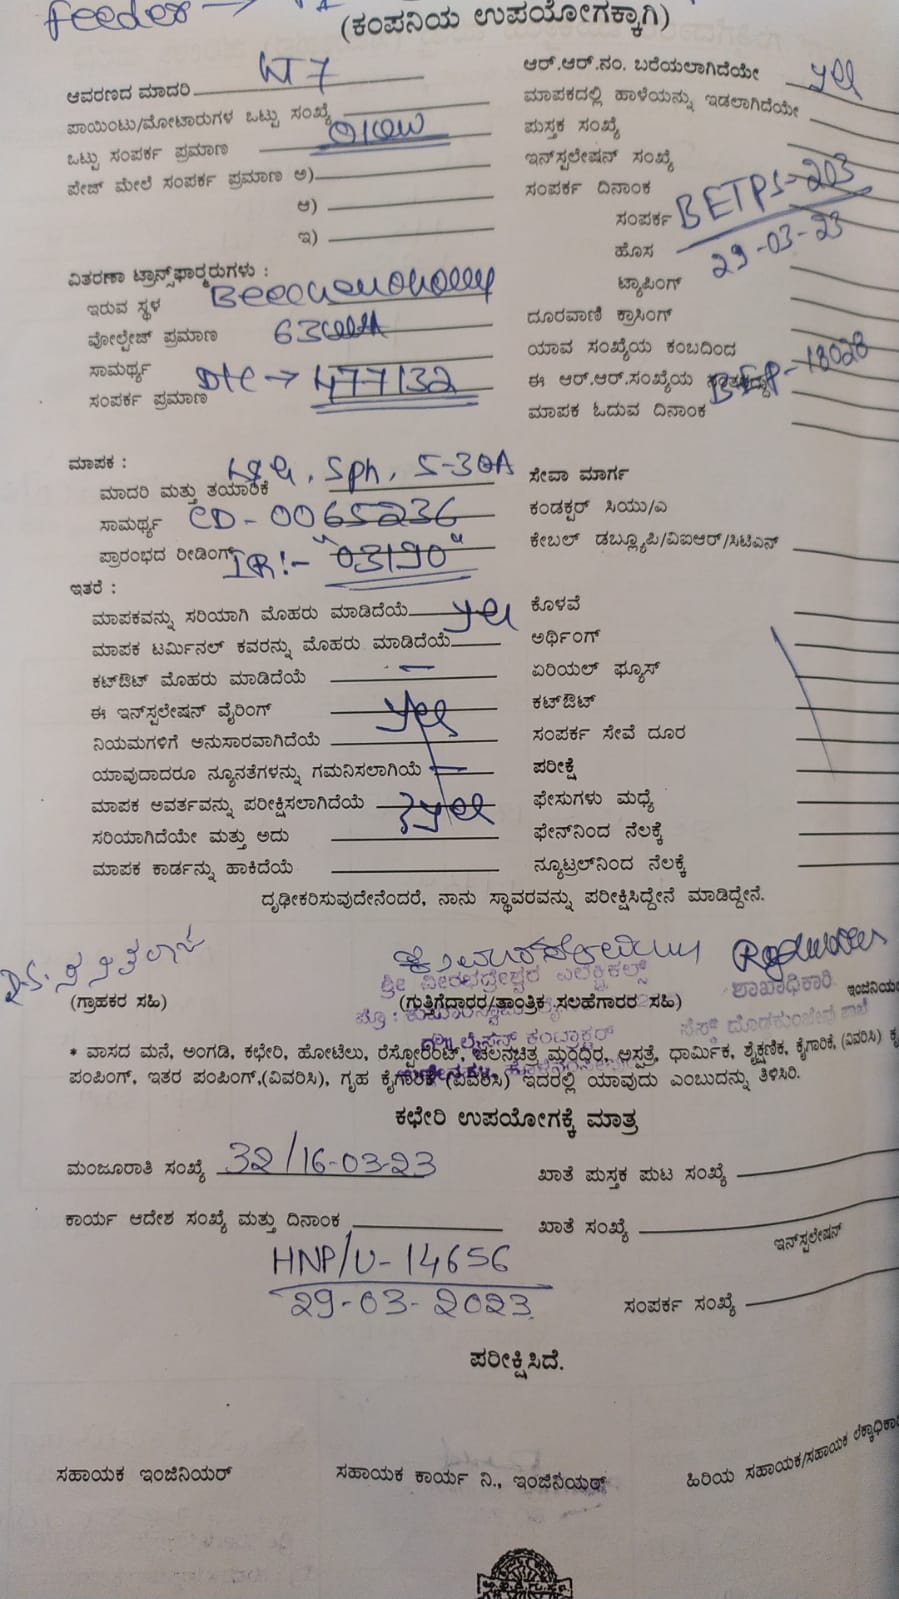 Feeder →
(ಕಂಪನಿಯ ಉಪಯೋಗಕ್ಕಾಗಿ)
ಆವರಣದ ಮಾದರಿ
ಪಾಯಿಂಟು/ಮೋಟಾರುಗಳ ಒಟ್ಟು ಸಂಖ್ಯೆ
ಒಟ್ಟು ಸಂಪರ್ಕ ಪ್ರಮಾಣ
ಪೇಜ್ ಮೇಲೆ ಸಂಪರ್ಕ ಪ್ರಮಾಣ ಅ)
ಆ)
ಇ)
ವಿತರಣಾ ಟ್ರಾನ್ಸ್‌ಫಾರ್‍ಮರುಗಳು :
ಇರುವ ಸ್ಥಳ
ವೋಲ್ಟೇಜ್ ಪ್ರಮಾಣ 63
ಸಾಮರ್ಥ್ಯ
ಸಂಪರ್ಕ ಪ್ರಮಾಣ DTC → 477132
ಆರ್.ಆರ್.ನಂ. ಬರೆಯಲಾಗಿದೆಯೇ yes
ಮಾಪಕದಲ್ಲಿ ಹಾಳೆಯನ್ನು ಇಡಲಾಗಿದೆಯೇ
ಪುಸ್ತಕ ಸಂಖ್ಯೆ
ಇನ್‌ಸ್ಟಲೇಷನ್ ಸಂಖ್ಯೆ
ಸಂಪರ್ಕ ದಿನಾಂಕ
ಸಂಪರ್ಕ BETPS-203
ಹೊಸ 29-03-23
ಟ್ಯಾಪಿಂಗ್
ದೂರವಾಣಿ ಕ್ರಾಸಿಂಗ್
ಯಾವ ಸಂಖ್ಯೆಯ ಕಂಬದಿಂದ
ಈ ಆರ್.ಆರ್.ಸಂಖ್ಯೆಯ 18028
ಮಾಪಕ ಓದುವ ದಿನಾಂಕ
ಮಾಪಕ :
ಮಾದರಿ ಮತ್ತು ತಯಾರಿಕೆ L&G, Sph, 5-30A
ಸಾಮರ್ಥ್ಯ CD-0065236
ಪ್ರಾರಂಭದ ರೀಡಿಂಗ್ IR:- "03190"
ಸೇವಾ ಮಾರ್ಗ
ಕಂಡಕ್ಟರ್ ಸಿಯು/ಎ
ಕೇಬಲ್ ಡಬ್ಲ್ಯೂಪಿ/ವಿಐಆರ್/ಸಿಟಿಎಸ್
ಇತರೆ :
ಮಾಪಕವನ್ನು ಸರಿಯಾಗಿ ಮೊಹರು ಮಾಡಿದೆಯೆ yes
ಮಾಪಕ ಟರ್ಮಿನಲ್ ಕವರನ್ನು ಮೊಹರು ಮಾಡಿದೆಯೆ
ಕಟ್‌ಔಟ್ ಮೊಹರು ಮಾಡಿದೆಯೆ
ಈ ಇನ್‌ಸ್ಟಲೇಷನ್ ವೈರಿಂಗ್ yes
ನಿಯಮಗಳಿಗೆ ಅನುಸಾರವಾಗಿದೆಯೆ
ಯಾವುದಾದರೂ ನ್ಯೂನತೆಗಳನ್ನು ಗಮನಿಸಲಾಗಿಯೆ
ಮಾಪಕ ಅವರ್ತವನ್ನು ಪರೀಕ್ಷಿಸಲಾಗಿದೆಯೆ yes
ಸರಿಯಾಗಿದೆಯೇ ಮತ್ತು ಅದು
ಮಾಪಕ ಕಾರ್ಡನ್ನು ಹಾಕಿದೆಯೆ
ಕೊಳವೆ
ಅರ್ಥಿಂಗ್
ಏರಿಯಲ್ ಫ್ಯೂಸ್
ಕಟ್‌ಔಟ್
ಸಂಪರ್ಕ ಸೇವೆ ದೂರ
ಪರೀಕ್ಷೆ
ಫೇಸುಗಳು ಮಧ್ಯೆ
ಫೇಸ್‌ನಿಂದ ನೆಲಕ್ಕೆ
ನ್ಯೂಟ್ರಲ್‌ನಿಂದ ನೆಲಕ್ಕೆ
ದೃಢೀಕರಿಸುವುದೇನೆಂದರೆ, ನಾನು ಸ್ಥಾವರವನ್ನು ಪರೀಕ್ಷಿಸಿದ್ದೇನೆ ಮಾಡಿದ್ದೇನೆ.
ಶ್ರೀ ವೀರಭದ್ರೇಶ್ವರ ಎಲೆಕ್ಟ್ರಿಕಲ್ಸ್
ಶಾಖಾಧಿಕಾರಿ
(ಗ್ರಾಹಕರ ಸಹಿ)
(ಗುತ್ತಿಗೆದಾರರ/ತಾಂತ್ರಿಕ ಸಲಹೆಗಾರರ ಸಹಿ)
* ವಾಸದ ಮನೆ, ಅಂಗಡಿ, ಕಛೇರಿ, ಹೋಟೆಲು, ರೆಸ್ಟೋರೆಂಟ್, ಚಲನಚಿತ್ರ ಮಂದಿರ, ಅಸ್ಪತ್ರೆ, ಧಾರ್ಮಿಕ, ಶೈಕ್ಷಣಿಕ, ಕೈಗಾರಿಕೆ, (ವಿವರಿಸಿ)
ಪಂಪಿಂಗ್, ಇತರ ಪಂಪಿಂಗ್,(ವಿವರಿಸಿ), ಗೃಹ ಕೈಗಾರಿಕೆ (ವಿವರಿಸಿ) ಇದರಲ್ಲಿ ಯಾವುದು ಎಂಬುದನ್ನು ತಿಳಿಸಿರಿ.
ಕಛೇರಿ ಉಪಯೋಗಕ್ಕೆ ಮಾತ್ರ
ಮಂಜೂರಾತಿ ಸಂಖ್ಯೆ 32/16-03-23
ಖಾತೆ ಪುಸ್ತಕ ಪುಟ ಸಂಖ್ಯೆ
ಕಾರ್ಯ ಆದೇಶ ಸಂಖ್ಯೆ ಮತ್ತು ದಿನಾಂಕ
ಖಾತೆ ಸಂಖ್ಯೆ
ಇನ್‌ಸ್ಟಲೇಷನ್
HNP/U-14656
29-03-2023
ಸಂಪರ್ಕ ಸಂಖ್ಯೆ
ಪರೀಕ್ಷಿಸಿದೆ.
ಸಹಾಯಕ ಇಂಜಿನಿಯರ್
ಸಹಾಯಕ ಕಾರ್ಯ ನಿ., ಇಂಜಿನಿಯರ್
ಹಿರಿಯ ಸಹಾಯಕ/ಸಹಾಯಕ